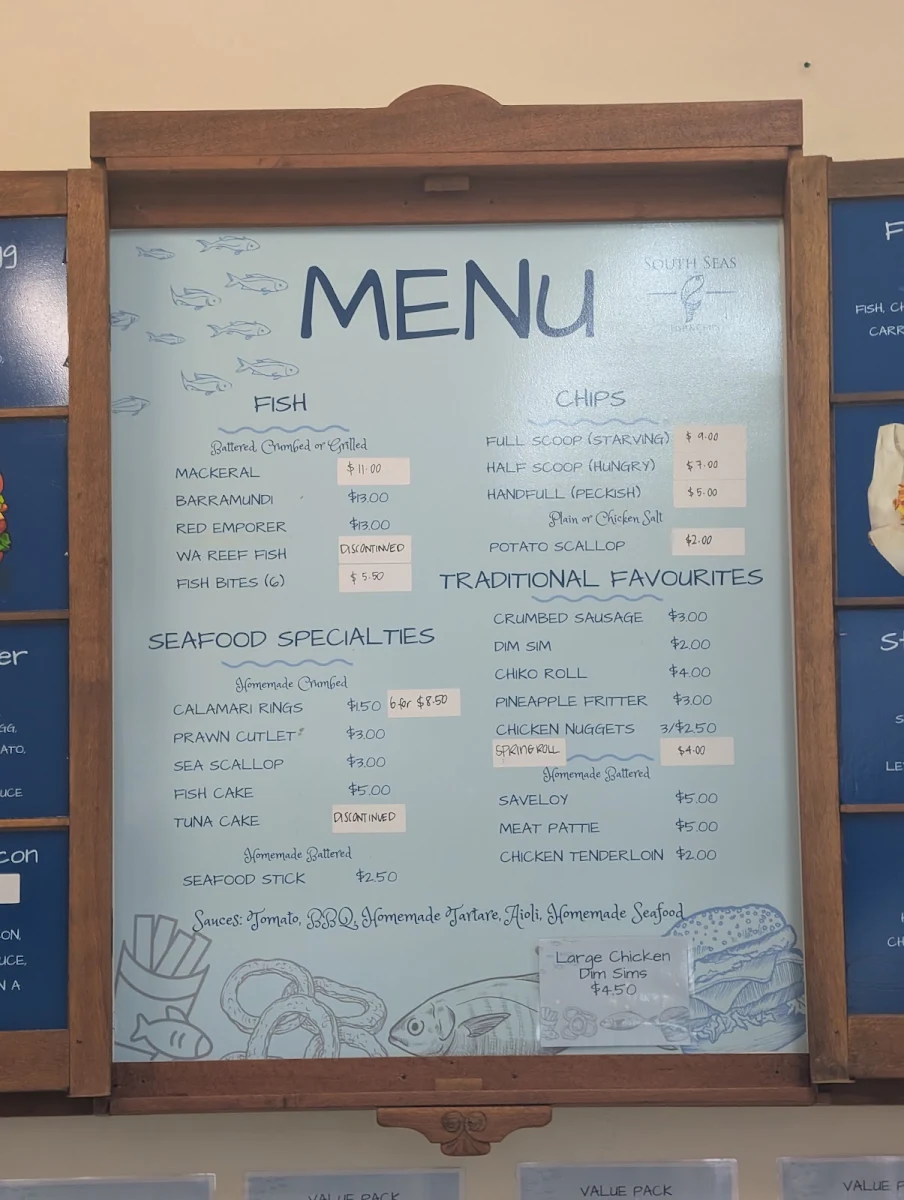 MENU
SOUTH SEAS
FISH
Battered, Crumbed or Grilled
MACKERAL $11.00
BARRAMUNDI $13.00
RED EMPORER $13.00
WA REEF FISH DISCONTINUED
FISH BITES (6) $5.50
SEAFOOD SPECIALTIES
Homemade Crumbed
CALAMARI RINGS $1.50 6 for $8.50
PRAWN CUTLET $3.00
SEA SCALLOP $3.00
FISH CAKE $5.00
TUNA CAKE DISCONTINUED
Homemade Battered
SEAFOOD STICK $2.50
CHIPS
FULL SCOOP (STARVING) $9.00
HALF SCOOP (HUNGRY) $7.00
HANDFULL (PECKISH) $5.00
Plain or Chicken Salt
POTATO SCALLOP $2.00
TRADITIONAL FAVOURITES
CRUMBED SAUSAGE $3.00
DIM SIM $2.00
CHIKO ROLL $4.00
PINEAPPLE FRITTER $3.00
CHICKEN NUGGETS 3/$2.50
SPRING ROLL $4.00
Homemade Battered
SAVELOY $5.00
MEAT PATTIE $5.00
CHICKEN TENDERLOIN $2.00
Sauces: Tomato, BBQ, Homemade Tartare, Aioli, Homemade Seafood
Large Chicken
Dim Sims
$4.50
FISH, CH
CARR
VALUE PACK
VALUE PACK